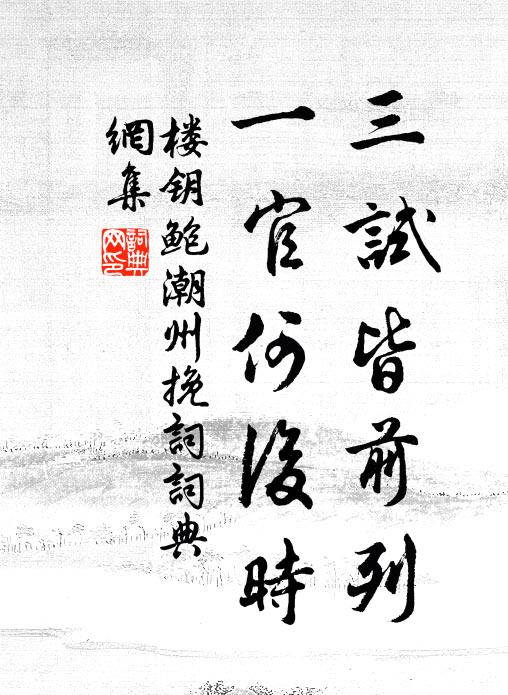 三試皆前列
一官何後時
楼钥鲍潮州挽詞詞典
網集
詞典
网印